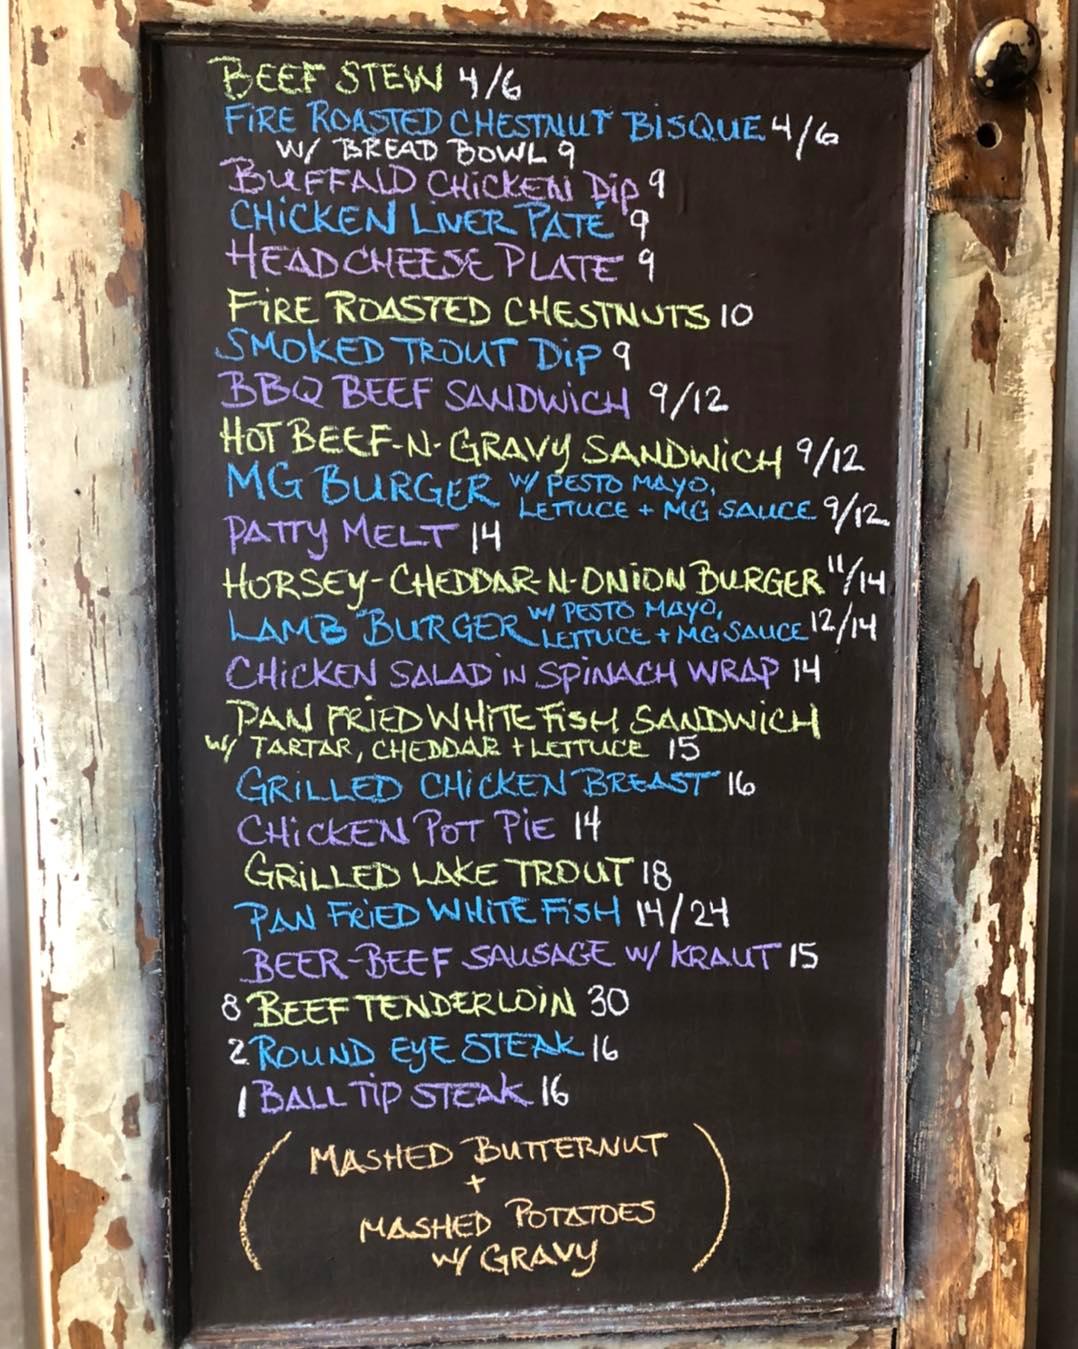 BEEF STEW 4/6
FIRE ROASTED CHESTNUT BISQUE 4/6
W/ BREAD BOWL 9
BUFFALO CHICKEN DIP 9
CHICKEN LIVER PATÉ 9
HEADCHEESE PLATE 9
FIRE ROASTED CHESTNUTS 10
SMOKED TROUT DIP 9
BBQ BEEF SANDWICH 9/12
HOT BEEF-N-GRAVY SANDWICH 9/12
MG BURGER W/ PESTO MAYO,
LETTUCE + MG SAUCE 9/12
PATTY MELT 14
HORSEY-CHEDDAR-N-ONION BURGER 11/14
LAMB BURGER W/ PESTO MAYO,
LETTUCE + MG SAUCE 12/14
CHICKEN SALAD IN SPINACH WRAP 14
PAN FRIED WHITE FISH SANDWICH
W/ TARTAR, CHEDDAR + LETTUCE 15
GRILLED CHICKEN BREAST 16
CHICKEN POT PIE 14
GRILLED LAKE TROUT 18
PAN FRIED WHITE FISH 14/24
BEER-BEEF SAUSAGE W/ KRAUT 15
8 BEEF TENDERLOIN 30
2 ROUND EYE STEAK 16
1 BALL TIP STEAK 16
(MASHED BUTTERNUT
+
MASHED POTATOES
W/ GRAVY)